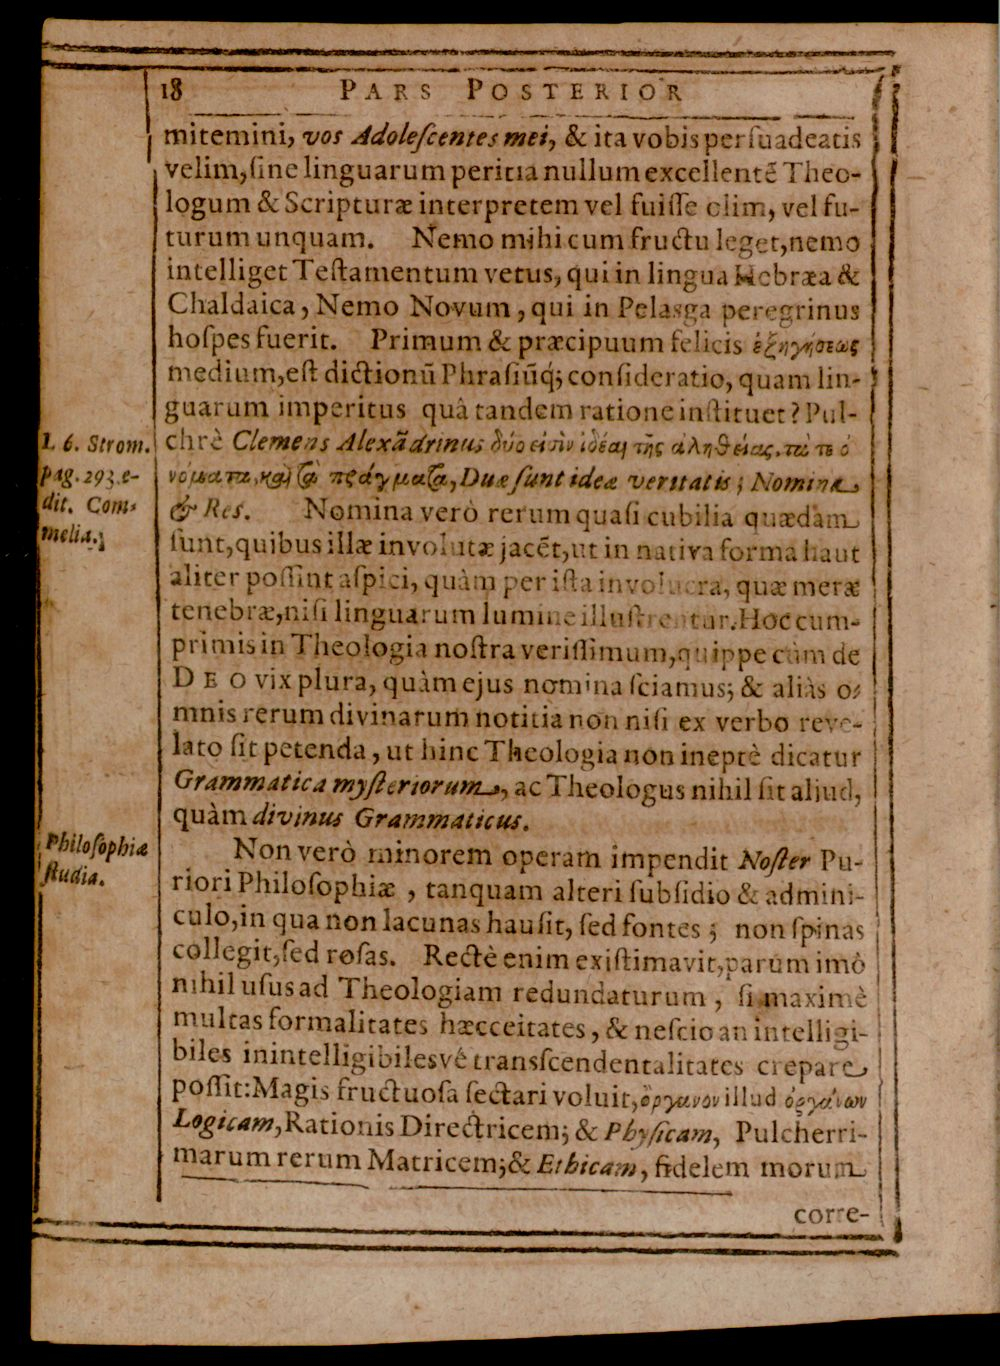 18 PARS POSTERIOR
mitemini, vos Adoleſcentes mei, & ita vobis perſuadeatis
velim, ſine linguarum peritia nullum excellentẽ Theo-
logum & Scripturæ interpretem vel fuiſſe olim, vel fu-
turum unquam. Nemo mihi cum fructu leget, nemo
intelliget Teſtamentum vetus, qui in lingua Hebræa &
Chaldaica, Nemo Novum, qui in Pelasga peregrinus
hoſpes fuerit. Primum & præcipuum felicis ἐξηγήσεως
medium, eſt dictionũ Phraſiũq́; conſideratio, quam lin-
guarum imperitus quâ tandem ratione inſtituet? Pul-
L. 6. Strom.
pag. 293. e-
dit. Com-
melia.
chrè Clemens Alexãdrinus δύο εἰσὶν ἰδέαι τῆς ἀληθείας, τὰ τε ὀ
νόματα, καὶ τὰ πράγματα, Duæ ſunt ideæ veritatis; Nomina
& Res. Nomina verò rerum quaſi cubilia quædam
ſunt, quibus illæ involutæ jacẽt, ut in nativa forma haut
aliter poſſint aſpici, quàm per iſta involucra, quæ meræ
tenebræ, niſi linguarum lumine illuſtrentur. Hoc cum-
primis in Theologia noſtra veriſſimum, quippe cùm de
DEO vix plura, quàm ejus nomina ſciamus; & aliàs o-
mnis rerum divinarum notitia non niſi ex verbo reve-
lato ſit petenda, ut hinc Theologia non ineptè dicatur
Grammatica myſteriorum, ac Theologus nihil ſit aliud,
quàm divinus Grammaticus.
Philoſophiæ
ſtudia.
Non verò minorem operam impendit Noſter Pu-
riori Philoſophiæ, tanquam alteri ſubſidio & admini-
culo, in qua non lacunas hauſit, ſed fontes; non ſpinas
collegit, ſed roſas. Rectè enim exiſtimavit, parùm imò
nihil uſus ad Theologiam redundaturum, ſi maximè
multas formalitates hæcceitates, & neſcio an intelligi-
biles inintelligibilesvé transſcendentalitates crepare
poſſit: Magis fructuoſa ſectari voluit, ὄργανον illud ὀργάνων
Logicam, Rationis Directricem; & Phyſicam, Pulcherri-
marum rerum Matricem; & Ethicam, fidelem morum
corre-